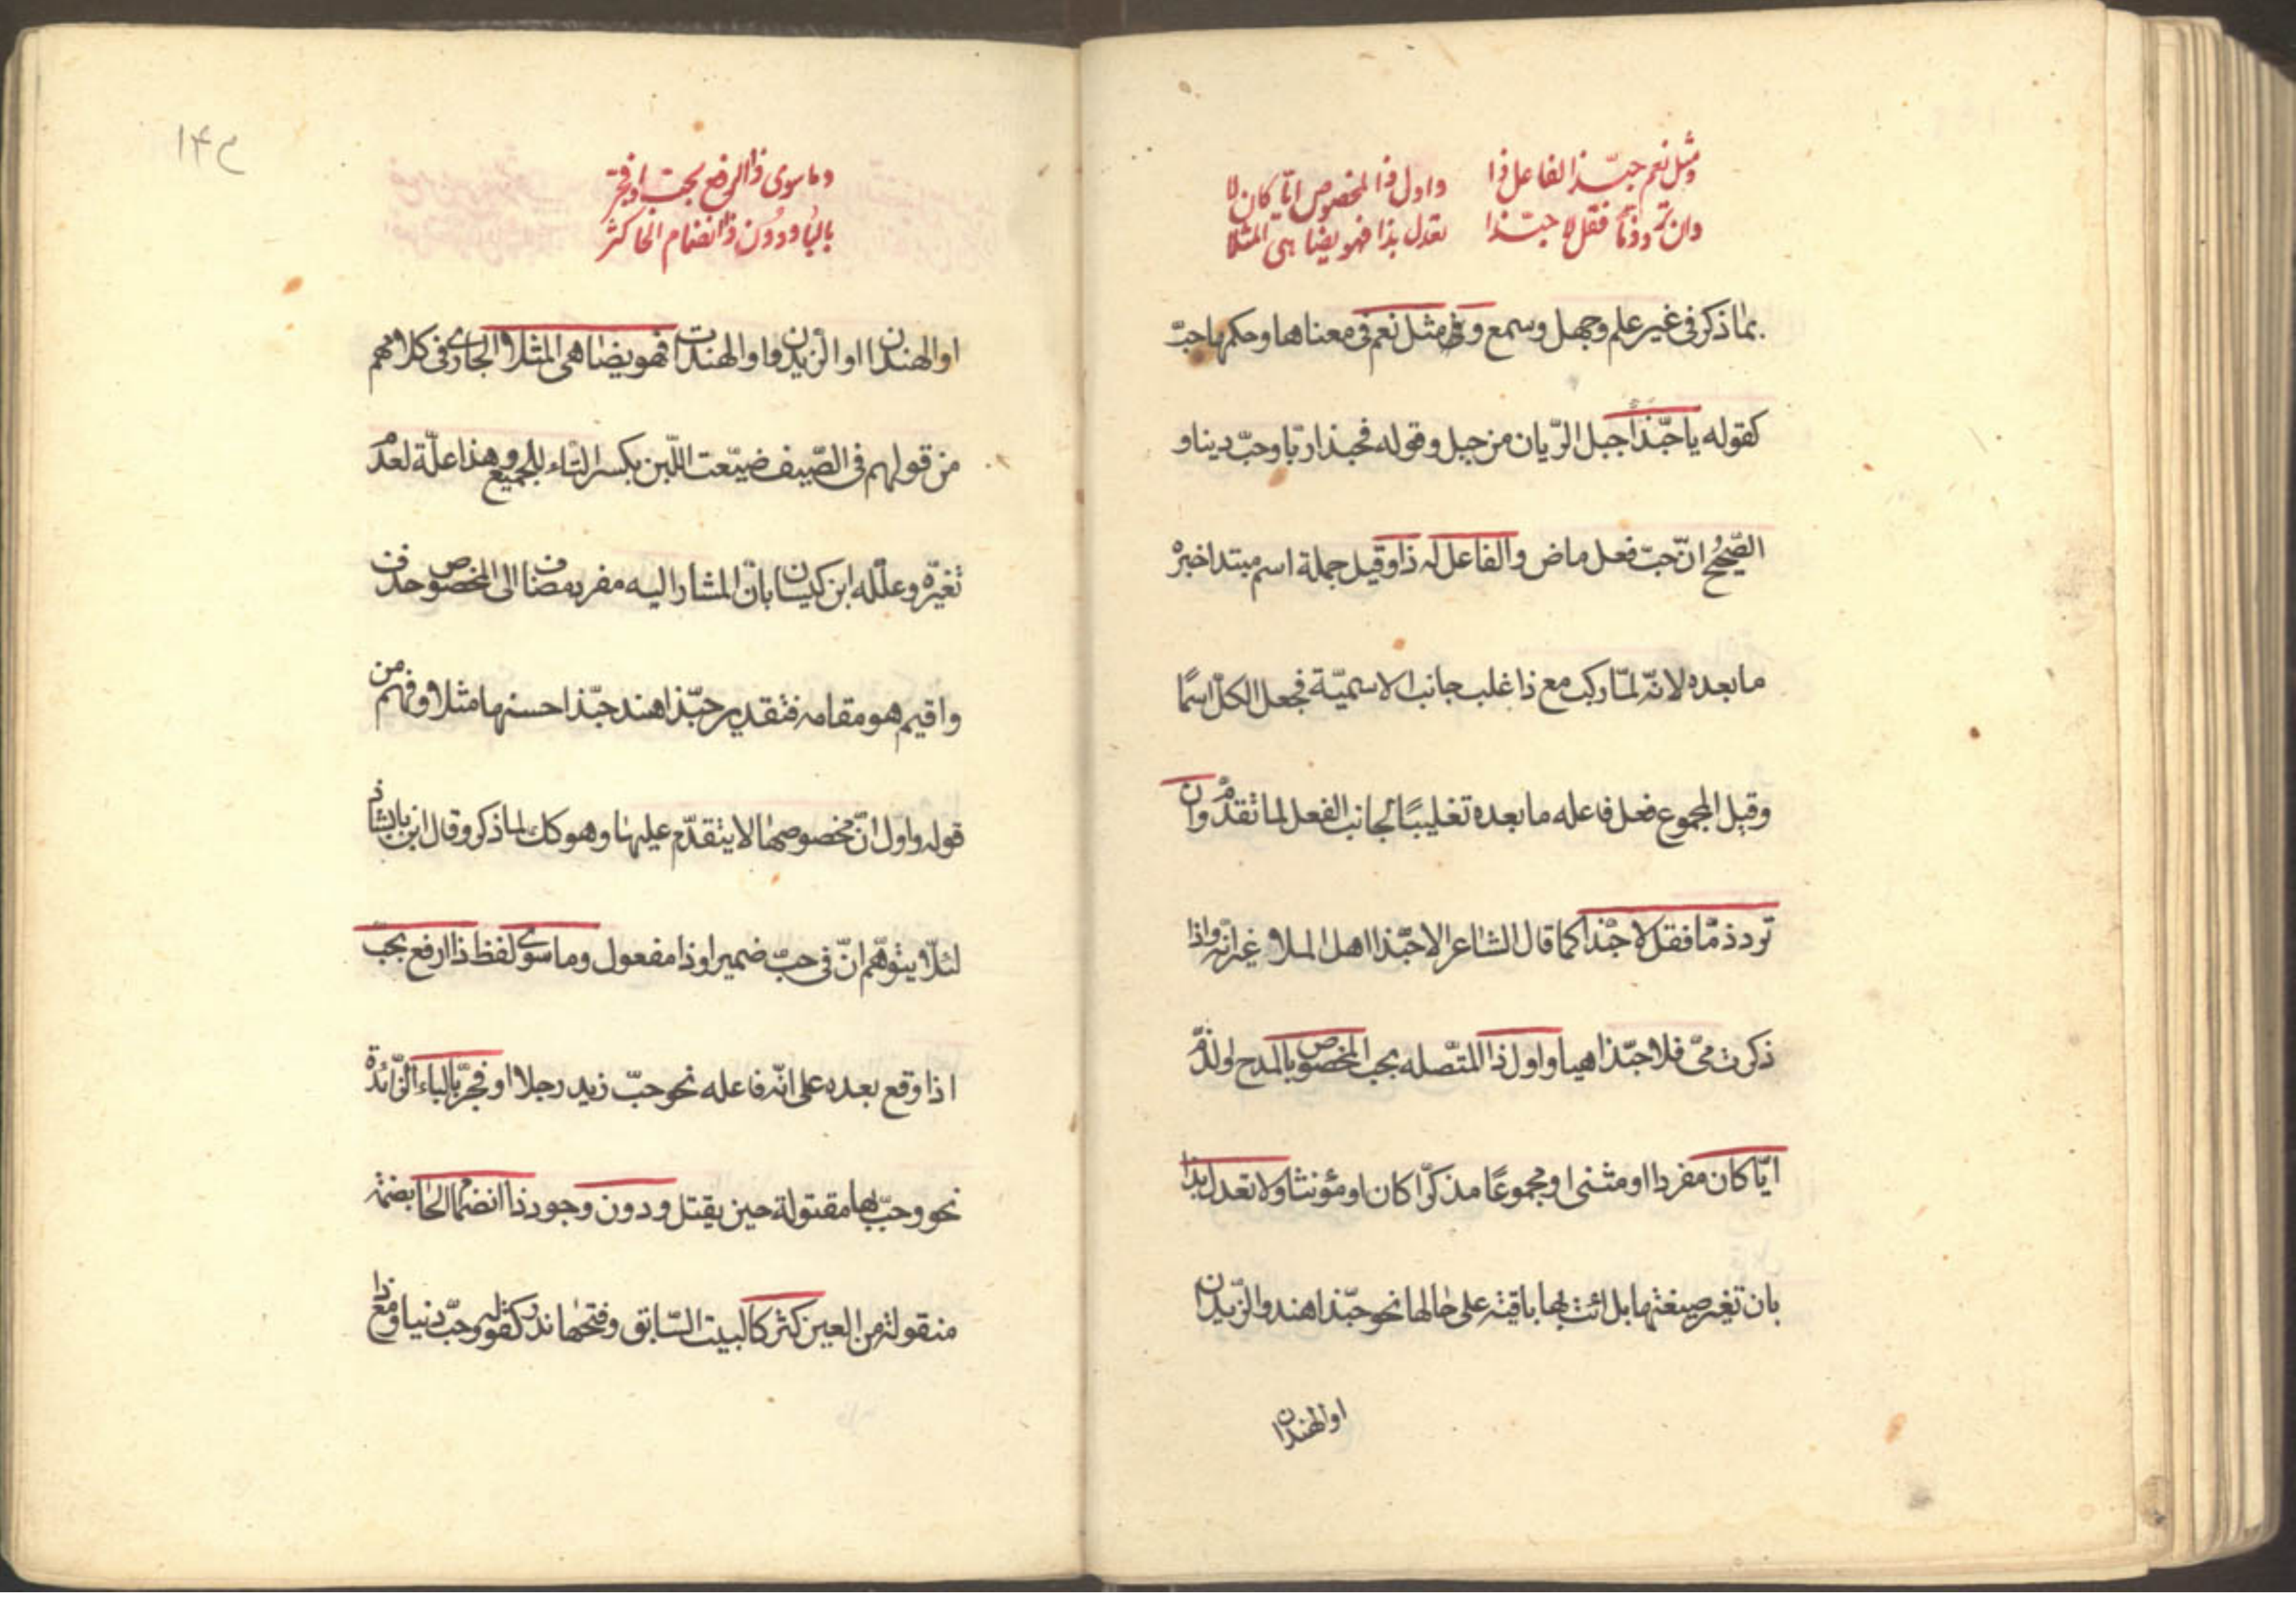 ومثل نعم حبّذا الفاعل ذا
واول ذا المخصوص ايّا كان لا
وان ترد ذمّا فقل لا حبّذا
تعدل بذا فهو يضاهى المثلا
بما ذكر فى غير علم وجهل وسمع و مثل نعم فى معناها وحكمها حبّ
كقوله يا حبّذا جبل الرّيان من جبل وقوله فحبذا ربّا وحبّ دينا و
الصّحيح انّ حبّ فعل ماض والفاعل له ذا وقيل جملة اسم مبتدا خبره
ما بعده لانّه لمّا ركب مع ذا غلب جانب الاسميّة فجعل الكلّ اسمًا
وقيل المجموع فعل فاعله ما بعده تغليبًا لجانب الفعل لما تقدّم وان
ترد ذمّا فقل لا حبّذا كما قال الشاعر الا حبّذا اهل الملا غير انّه واذا
ذكرت مىّ فلا حبّذا هيا واول ذا المتّصله بحب المخصوص بالمدح او لذّم
ايّا كان مفردا او مثنى او مجموعًا مذكرّا كان او مؤنثا ولا تعدل بذا
بان تغير صيغتها بل ائت بها باقية على حالها نحو حبّذا هند والزيدان
او الهندان
١٤٣
وما سوى ذا ارفع بحبّ او فجرّ
بالبا ودون ذا انضمام الحا كثر
او الهندان او الزيدون او الهندات فهو يضاهى المثلا الجارى فى كلامهم
من قولهم فى الصّيف ضيّعت اللّبن بكسر التاء للجميع وهذا علّة لعدم
تغيّره وعلّله ابن كيسان بانّ المشار اليه مفرد مضاف الى المخصوص حذف
واقيم هو مقامه فتقدير حبّذا هند حبّذا حسنها مثلا وفهم من
قوله واول انّ مخصوصها لا يتقدّم عليها وهو كك لما ذكر وقال ابن بابشاذ
لئلّا يتوهّم انّ فى حبّ ضميرا وذا مفعول وما سوى لفظ ذا ارفع بحبّ
اذا وقع بعده على انّه فاعله نحو حبّ زيد رجلا او فجرّ بالباء الزّائدة
نحو وحبّ بها مقتولة حين يقتل ودون وجود ذا انضمام الحا بضمّة
منقولة من العين كثر كالبيت السّابق وفتحها ندر كقوله وحبّ دينا ومع ذا